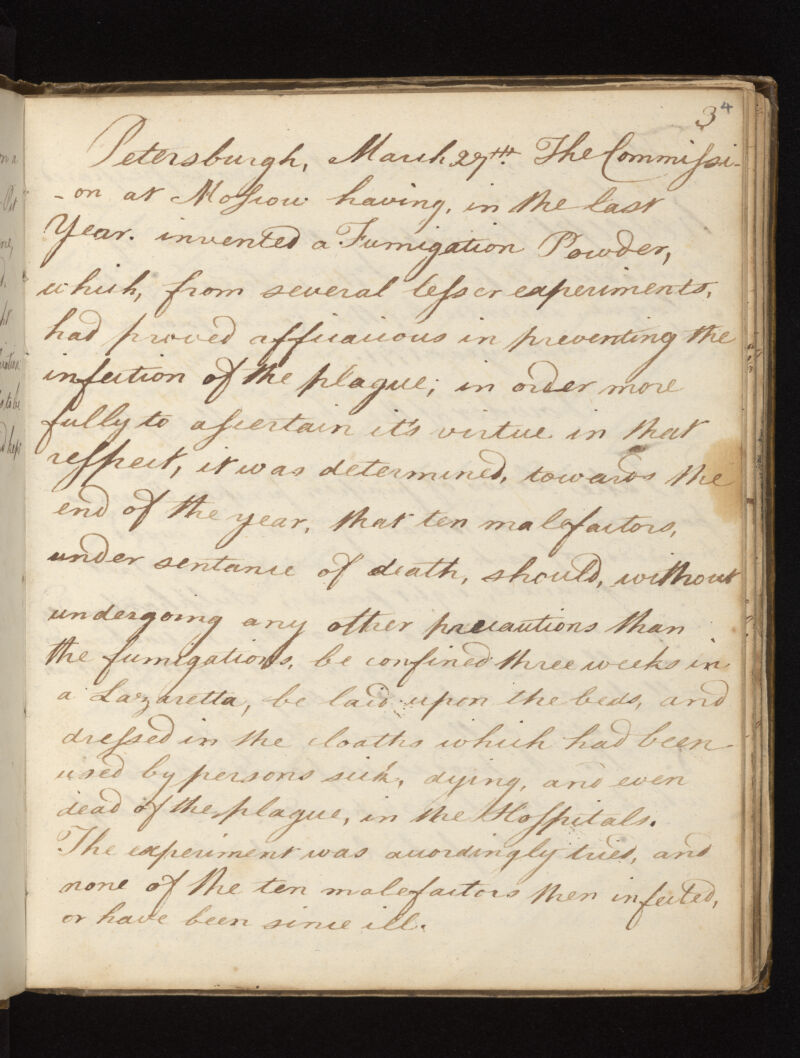 3 4
Petersburgh, March 27th. The Commissi-
-on at Moscow having, in the last
Year. invented a Fumigation Powder,
which, from several lesser experiments,
had proved afficacious in preventing the
infection of the plague; in order more
fully to ascertain it's virtue in that
respect, it was determined, towards the
end of the year, that ten malefactors,
under sentance of death, should, without
undergoing any other precautions than
the fumigations, be confined three weeks in
a Lazaretta, be laid upon the beds, and
dressed in the cloaths which had been
used by persons sick, dying, and even
dead of the plague, in the Hospitals.
The experiment was accordingly tried, and
none of the ten malefactors then infected,
or have been since ill.